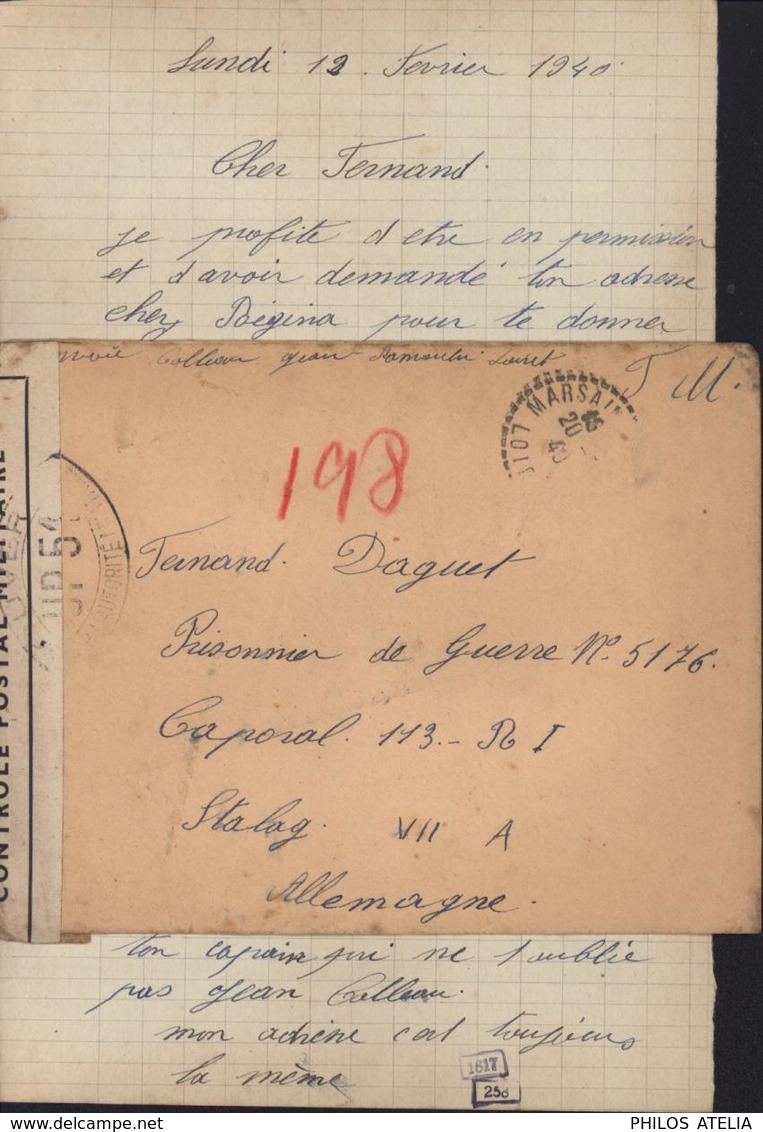 Lundi 12. Fevrier 1940
Cher Fernand.
je profite d etre en permission
et d avoir demandé ton adresse
chez Régina pour te donner
Colleau Jean Loiret
F M.
MARSAI
20
40
198
CONTROLE POSTAL MILITAIRE
AUTORITE
Fernand. Daguet
Prisonnier de Guerre N° 5176.
Caporal. 113.- R I
Stalag. VII A
Allemagne.
ton copain qui ne t oublie
pas Jean Colleau.
mon adresse c est toujours
la même
1617
258
PHILOS ATELIA